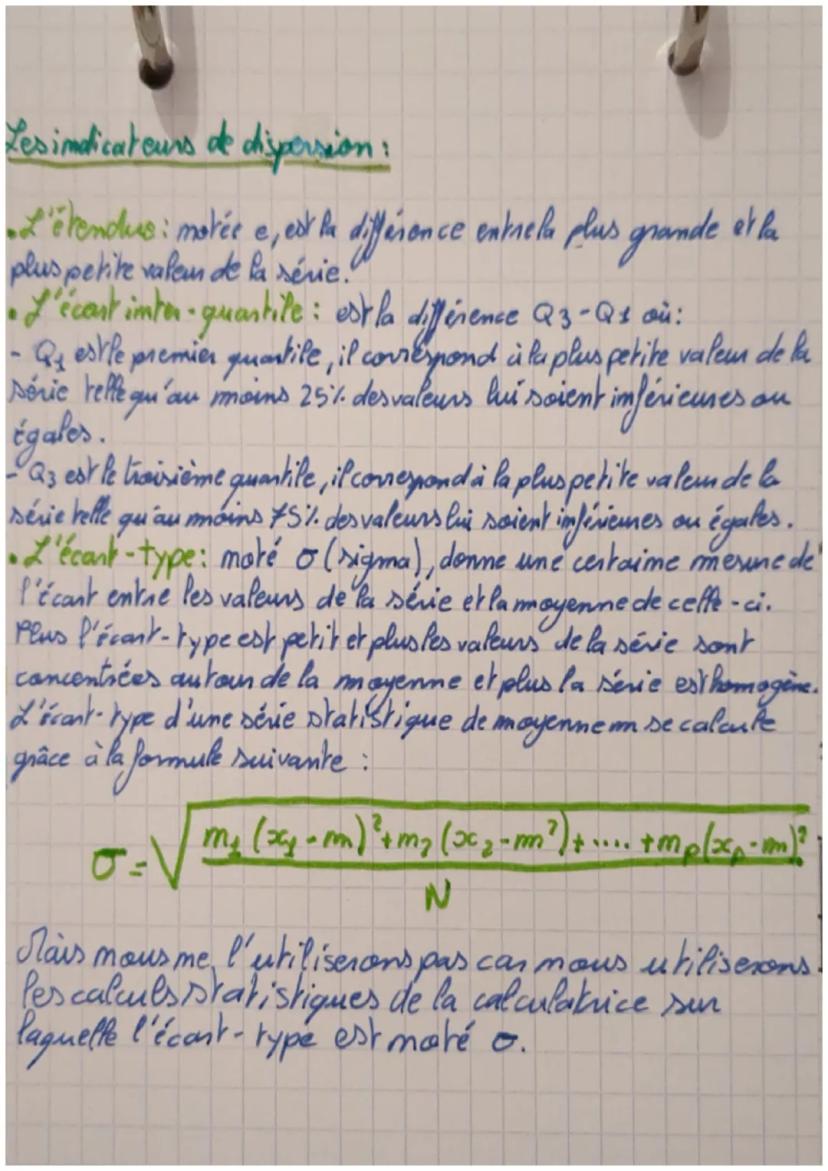 Les indicateurs de dispersion :
• L'étendue : notée e, est la différence entre la plus grande et la
plus petite valeur de la série.
• L'écart inter-quartile : est la différence Q3-Q1 où :
- Q1 est le premier quartile, il correspond à la plus petite valeur de la
série telle qu'au moins 25% des valeurs lui soient inférieures ou
égales.
- Q3 est le troisième quartile, il correspond à la plus petite valeur de la
série telle qu'au moins 75% des valeurs lui soient inférieures ou égales.
• L'écart-type : noté σ (sigma), donne une certaine mesure de
l'écart entre les valeurs de la série et la moyenne de celle-ci.
Plus l'écart-type est petit et plus les valeurs de la série sont
concentrées autour de la moyenne et plus la série est homogène.
L'écart-type d'une série statistique de moyenne m se calcule
grâce à la formule suivante :
σ = √ n1 (x1 - m)² + n2 (x2 - m²) + .... + np (xp - m)²
N
Mais nous ne l'utiliserons pas car nous utiliserons
les calculs statistiques de la calculatrice sur
laquelle l'écart-type est noté σ.